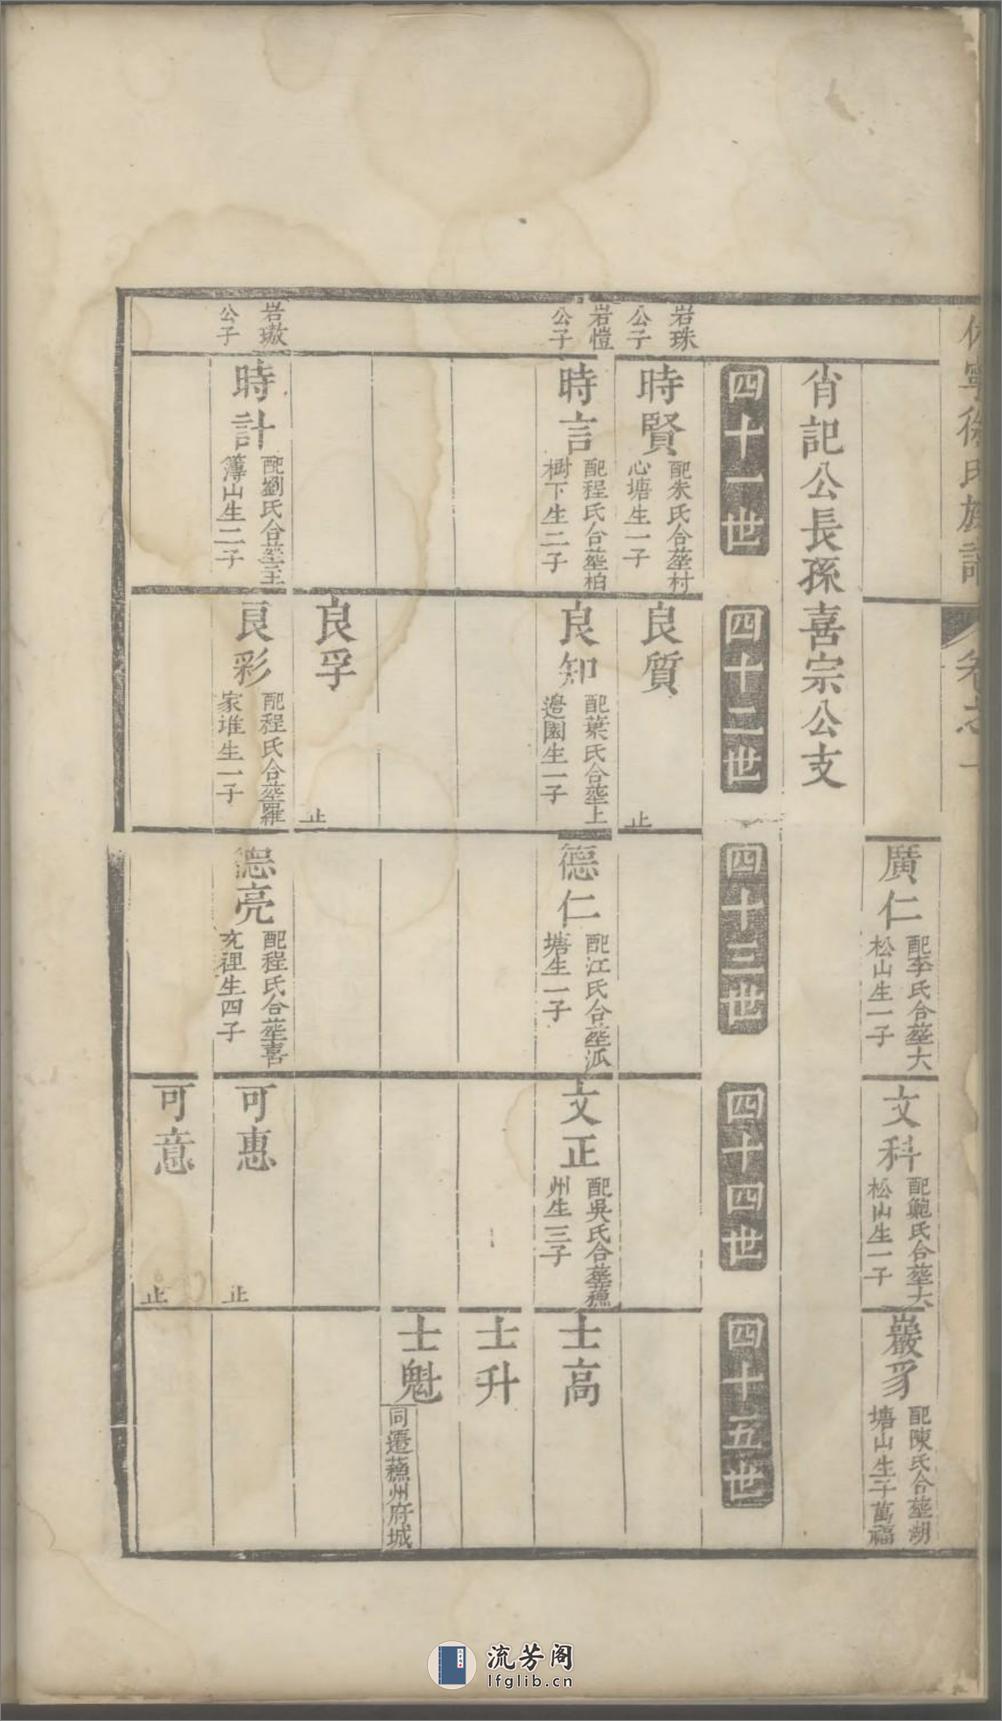 休寧徐氏族譜
卷之一
廣仁
配李氏合塟大
松山生一子
文科
配鮑氏合塟大
松山生一子
巖豸
配陳氏合塟湖
塘山生子萬福
肖記公長孫喜宗公支
四十一世
四十二世
四十三世
四十四世
四十五世
岩珠
公子
時賢
配朱氏合塟村
心塘生一子
良質
止
岩愷
公子
時言
配程氏合塟柏
樹下生二子
良知
配葉氏合塟上
邉園生一子
德仁
配江氏合塟泒
塘生一子
文正
配吳氏合塟蘓
州生三子
士高
士升
士魁
同遷蘓州府城
良孚
止
岩璈
公子
時計
配劉氏合塟王
簿山生二子
良彩
配程氏合塟羅
家堆生一子
德亮
配程氏合塟喜
充裡生四子
可惠
止
可意
止
流芳阁
lfglib.cn